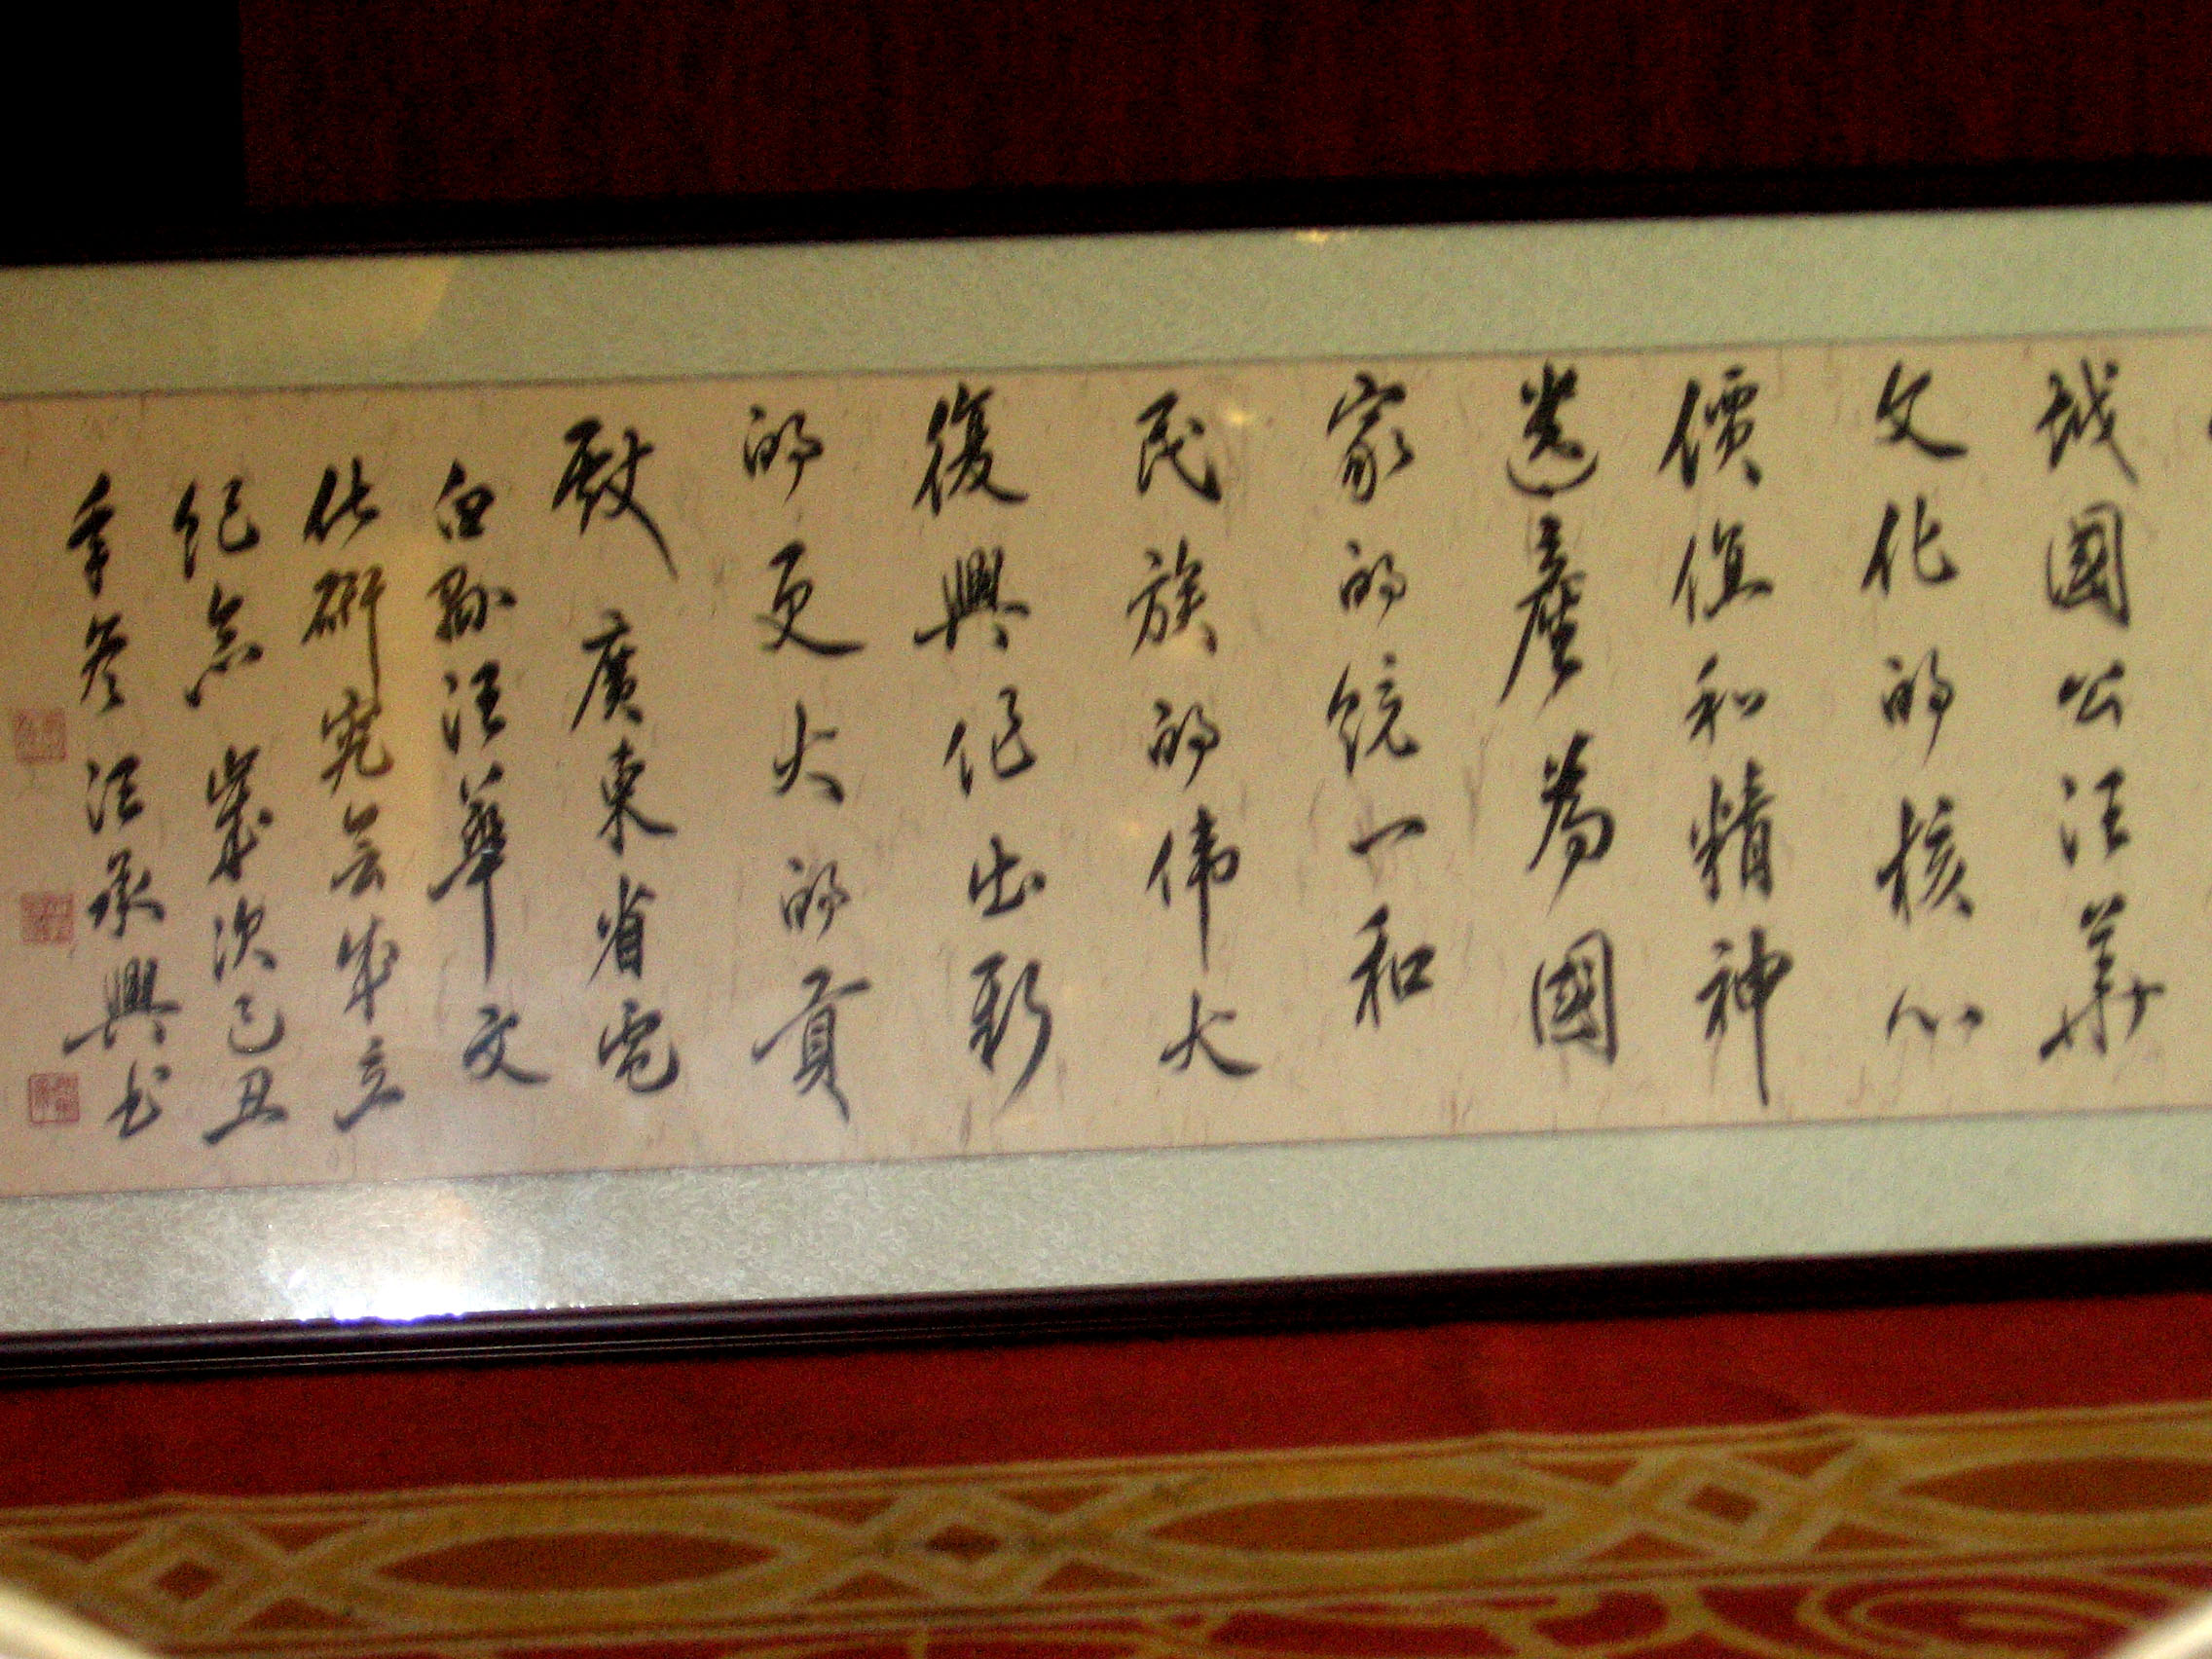 越國公汪華
文化的核心
價值和精神
遗產為國
家的统一和
民族的伟大
復興作出新
的更大的貢
献 廣東省電
白縣汪華文
化研究会成立
纪念 歲次己丑
年冬汪承興书